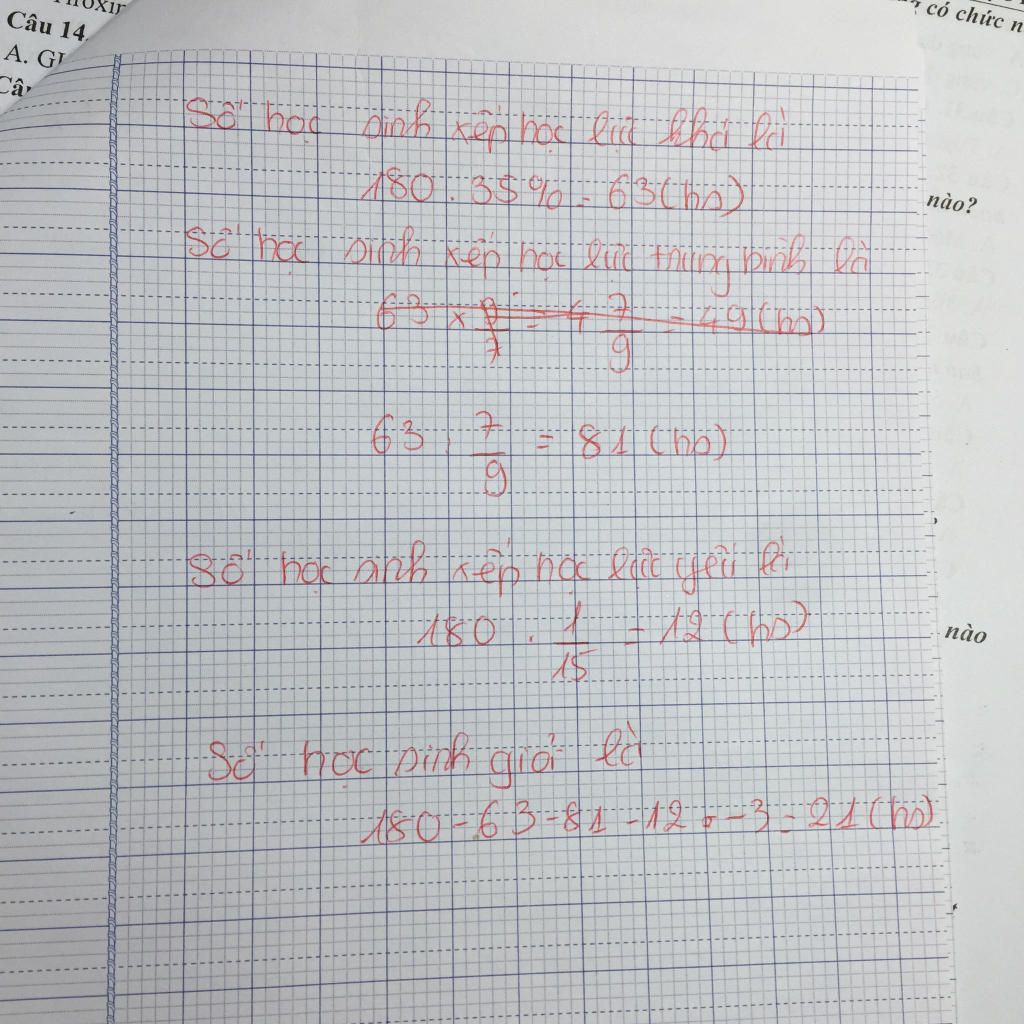 Câu 14.
A. GL
có chức n
nào?
nào
Số học sinh xếp học lực khá là
180 . 35% = 63 (hs)
Số học sinh xếp học lực trung bình là
63 × 9/7 = 4 7/9 = 49 (hs)
63 : 7/9 = 81 (hs)
Số học sinh xếp học lực yếu là
180 . 1/15 = 12 (hs)
Số học sinh giỏi là
180 - 63 - 81 - 12 - 3 = 21 (hs)